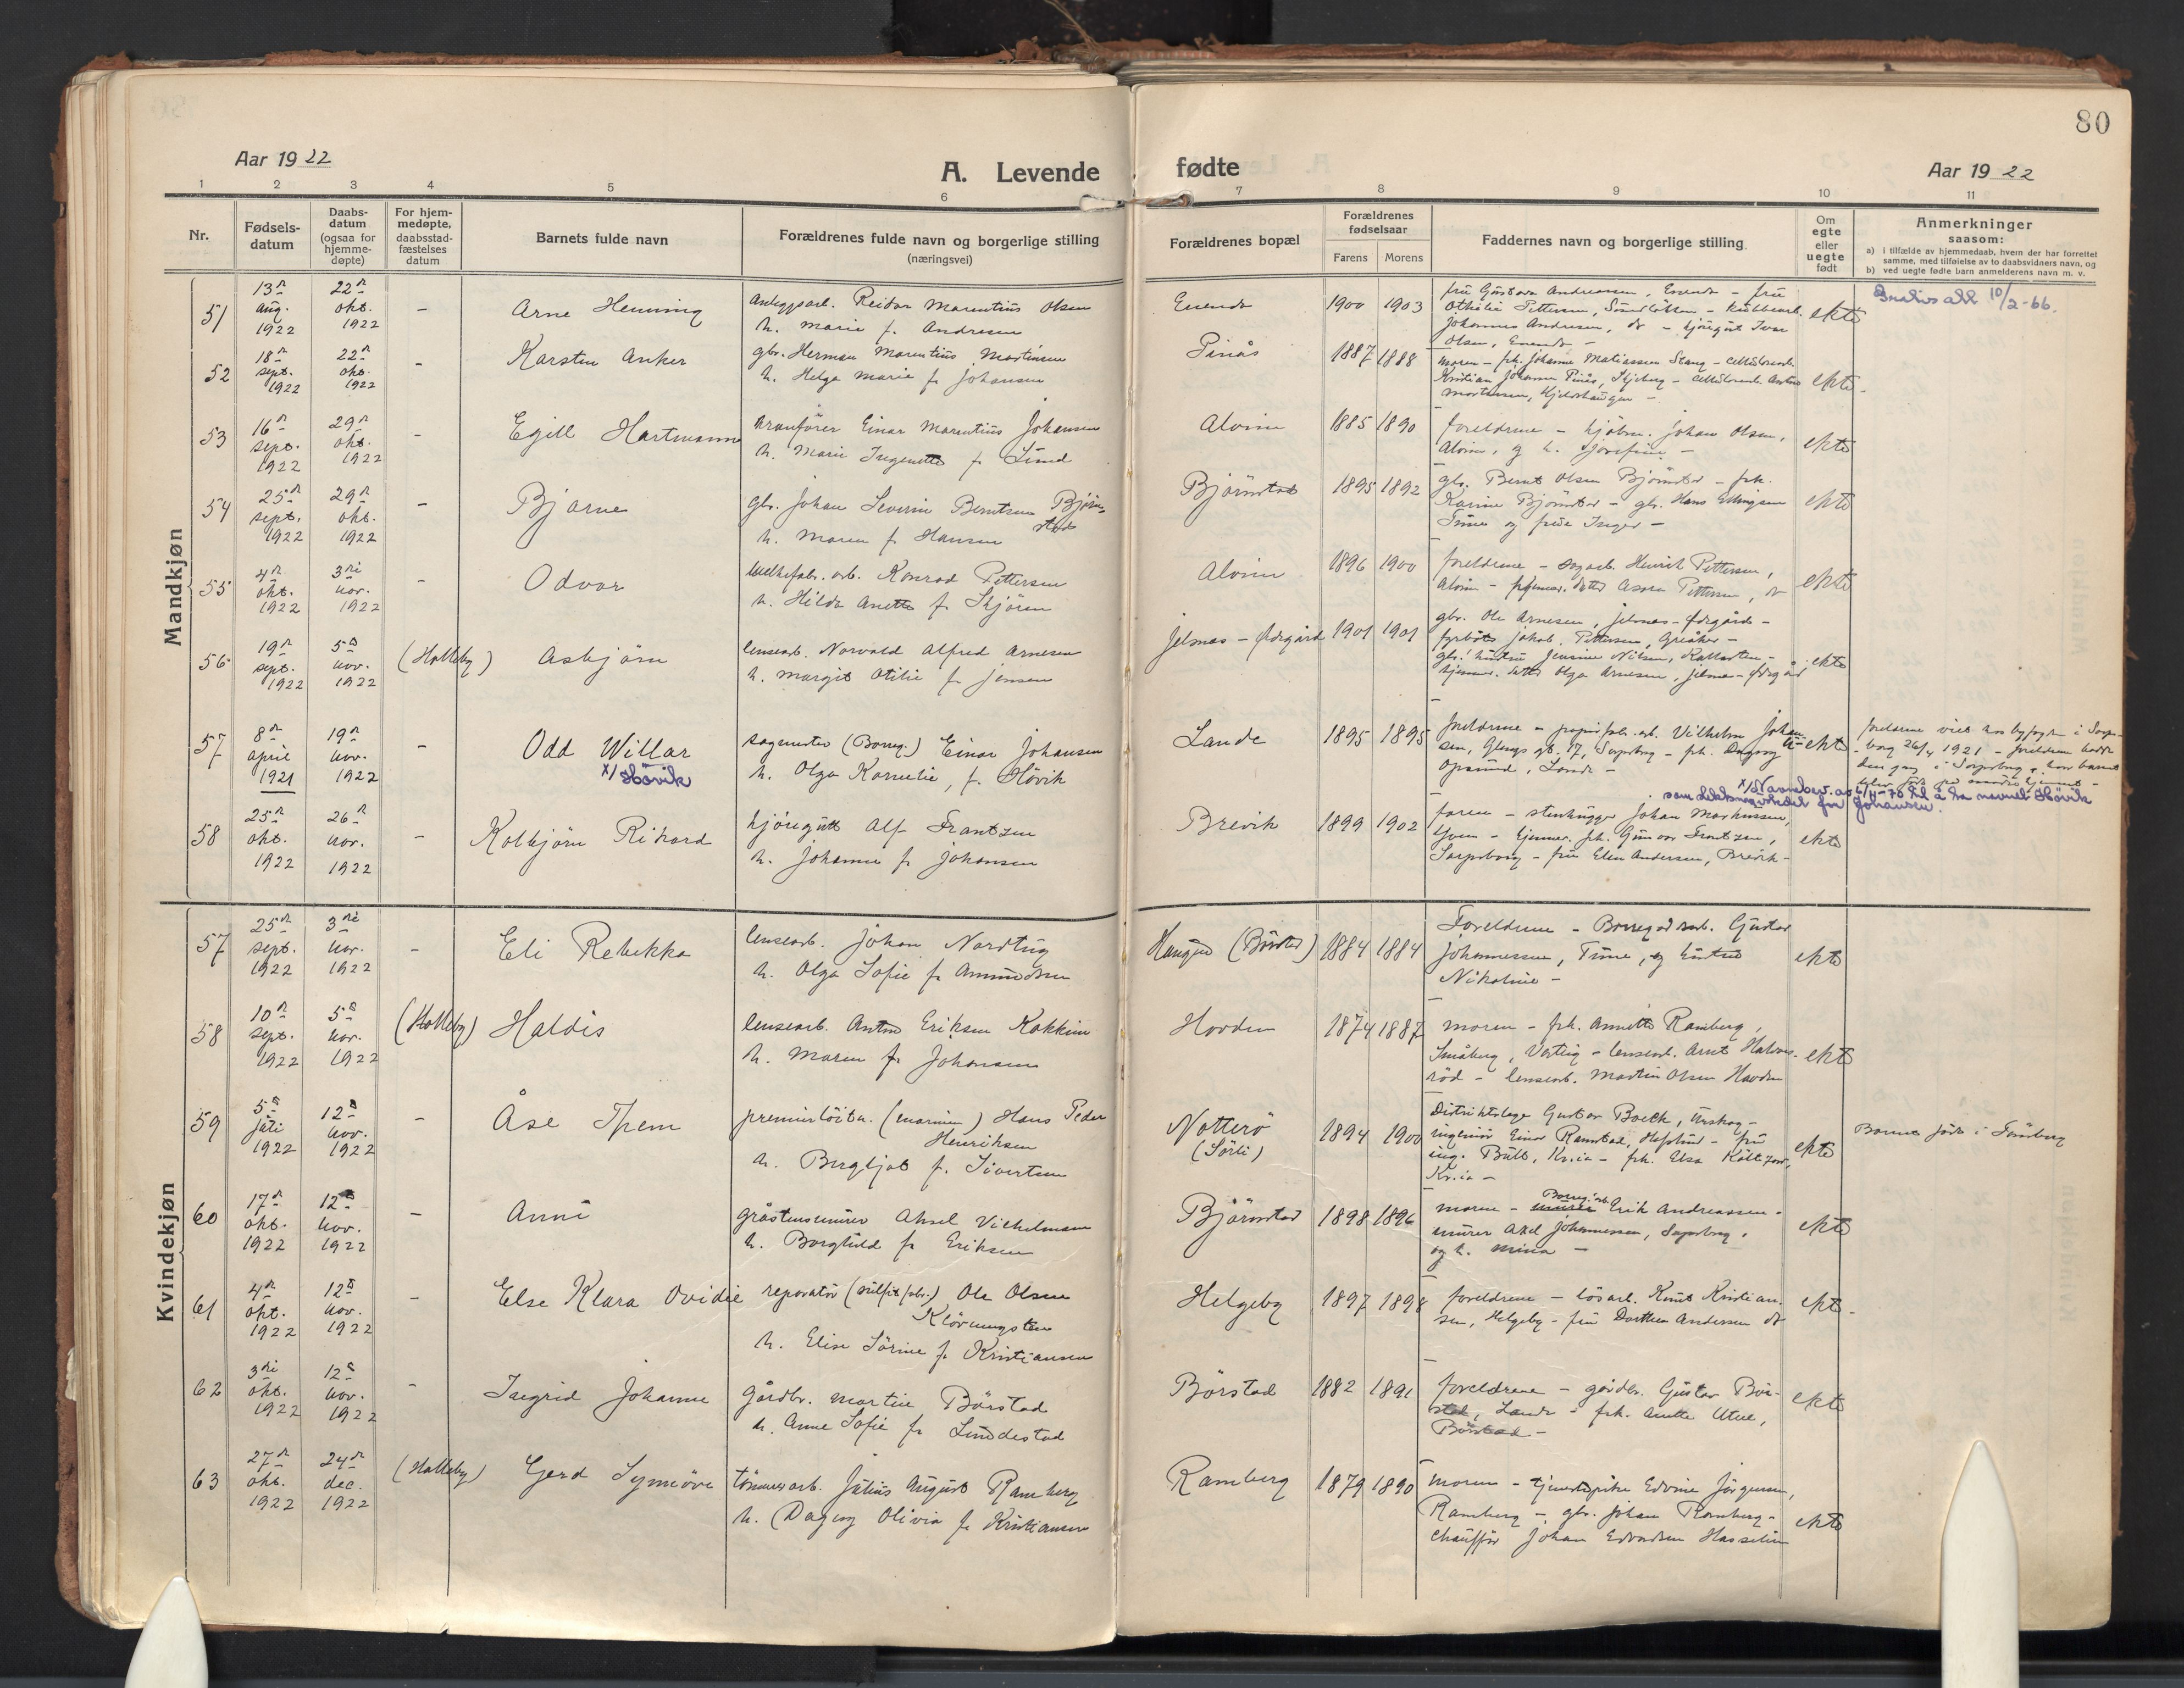 80
Aar 1922
A. Levende fødte
Aar 1922
1 2 3 4 5 6 7 8 9 10 11
Nr.
Fødsels-
datum
Daabs-
datum
(ogsaa for
hjemme-
døpte)
For hjem-
medøpte,
daabsstad-
fæstelses
datum
Barnets fulde navn
Forældrenes fulde navn og borgerlige stilling
(næringsvei)
Forældrenes bopæl
Forældrenes
fødselsaar
Farens Morens
Faddernes navn og borgerlige stilling
Om
egte
eller
uegte
født
Anmerkninger
saasom:
a) i tilfælde av hjemmedaab, hvem der har forrettet
samme, med tilføielse av to daabsvidners navn, og
b) ved uegte fødte barn anmelderens navn m. v.
Mandkjøn
51
13de aug. 1922
22de okt. 1922
-
Arne Henning
Reidar Marentius Olsen
h. Marie f. Andresen
Enende
1900 1903
fru Gustava Andreassen, Enende - fru
Othilie Pettersen,
Johannes Andresen, do - kjøregut Ivar
Olsen, Enende -
ekte
10/2-66.
52
18de sept. 1922
22de okt. 1922
-
Karsten Anker
gbr. Herman Marentius Martinsen
h. Helga Marie f. Johansen
Pinås
1887 1888
moren - frk. Johanne Matiassen Stang -
Kristian Johannes Pinås, Skjeberg -
Mortensen,
ekte
53
16de sept. 1922
29de okt. 1922
-
Egill Hartmann
kranfører Einar Marentius Johansen
h. Marie Ingenette f. Lund
Alvim
1885 1890
foreldrene - kjøbm. Johan Olsen,
Alvim, og h. Josefine -
ekte
54
25de sept. 1922
29de okt. 1922
-
Bjarne
gbr. Johan Severin Berntsen Bjørn-
stad
h. Maren f. Hansen
Bjørnstad
1895 1892
gbr. Bernt Olsen Bjørnstad - frk.
Karine Bjørnstad - gbr. Hans Ellingsen
Tune og frue Inger -
ekte
55
4de okt. 1922
3die nov. 1922
-
Odvar
Konrad Pettersen
h. Hilda Anette f. Skjøren
Alvim
1896 1900
foreldrene - sagarb. Henrik Pettersen,
Alvim - hjemmev. datter Asora Pettersen, do
ekte
56
19de sept. 1922
5te nov. 1922
(Holleby)
Asbjørn
lensearb. Norvald Alfred Arnesen
h. Margit Otilie f. Jensen
Jelsnes - Ødegård
1901 1901
gbr. Ole Arnesen, Jelsnes - Ødegård -
fyrbøt. Jakob Pettersen, Greåker -
gbr. hustru Jensine Nilsen,
hjemmev. datter Olga Arnesen, Jelsnes - Ødegård
ekte
57
8de april 1921
19de nov. 1922
-
Odd Willar
x/ Høvik
sagmester (Borreg.) Einar Johansen
h. Olga Kornelie, f. Høvik
Lande
1895 1895
foreldrene - papirfabr. arb. Vilhelm Johan-
sen, Glengs gt. 17, Sarpsborg - frk. Dagny
Opsund, Lande -
ekte
foreldrene viet hos byfogden i Sarps-
borg 26/4 1921 - foreldrene bodde
den gang i Sarpsborg, hvor barnet
x/ Navnebev. av 6/4-70 til å ta navnet Høvik
som slektsnavn i stedet for Johansen.
58
25de okt. 1922
26de nov. 1922
-
Kolbjørn Rikard
kjøregutt Alf Frantzen
h. Johanne f. Johansen
Brevik
1899 1902
faren - stenhugger Johan Markussen,
hjemmev. frk. Gunvor Frantzen,
Sarpsborg - fru Elen Andersen, Brevik -
ekte
Kvindekjøn
57
25de sept. 1922
3die nov. 1922
-
Eli Rebekka
lensearb. Johan Nordtug
h. Olga Sofie f. Amundsen
Haugen (Børstad)
1884 1884
Foreldrene - Borregaardsarb. Gustav
Johannessen, Tune, og hustru
Nikoline -
ekte
58
10de sept. 1922
5te nov. 1922
(Holleby)
Haldis
lensearb. Anton Eriksen Kokkim
h. Maren f. Johansen
Hovden
1874 1887
moren - frk. Annette Ramberg,
Småberg, Varteig - lensearb. Arnt Halvors-
rød - lensearb. Martin Olsen Hovden
ekte
59
5te juli 1922
12te nov. 1922
-
Åse Them
premierløitn. (marinen) Hans Peder
Henriksen
h. Bergljot f. Sivertsen
Nøtterø
(Sørli)
1894 1900
Distriktslæge Gustav Boeck, Urskog -
ingeniør Einar Ramstad, Hafslund - fru
ing. Bull, Kr.ia - frk. Elsa
Kr.ia -
ekte
Barnet født i Tønsberg
60
17de okt. 1922
12te nov. 1922
-
Anni
gråstensmurer Aksel Vilhelmsen
h. Borghild f. Eriksen
Bjørnstad
1898 1896
moren - Borreg. arb. Erik Andreassen -
murer Axel Johannessen, Sarpsborg,
og h. Mina -
ekte
61
4de okt. 1922
12te nov. 1922
-
Else Klara Ovidie
reparatør (sulfitfabr.) Ole Olsen
Kløvningsten
h. Elise Sørine f. Kristiansen
Helgeby
1897 1898
foreldrene - løsarb. Knut Kristian-
sen, Helgeby - fru Dorthea Andersen do
ekte
62
3die okt. 1922
12te nov. 1922
-
Ingrid Johanne
Gårdbr. Martin Børstad
h. Anne Sofie f. Lundestad
Børstad
1882 1891
foreldrene - gårdbr. Gustav Bør-
stad, Lande - frk. Anette Utne,
Børstad -
ekte
63
27de okt. 1922
24de dec. 1922
(Holleby)
Gerd Synnøve
tømmerarb. Julius August Ramberg
h. Dagny Olivia f. Kristiansen
Ramberg
1879 1890
moren - tjenestepike Edvine Jørgensen,
Ramberg - gbr. Johan Ramberg -
chauffør Johan Edvardsen Hasselien
ekte